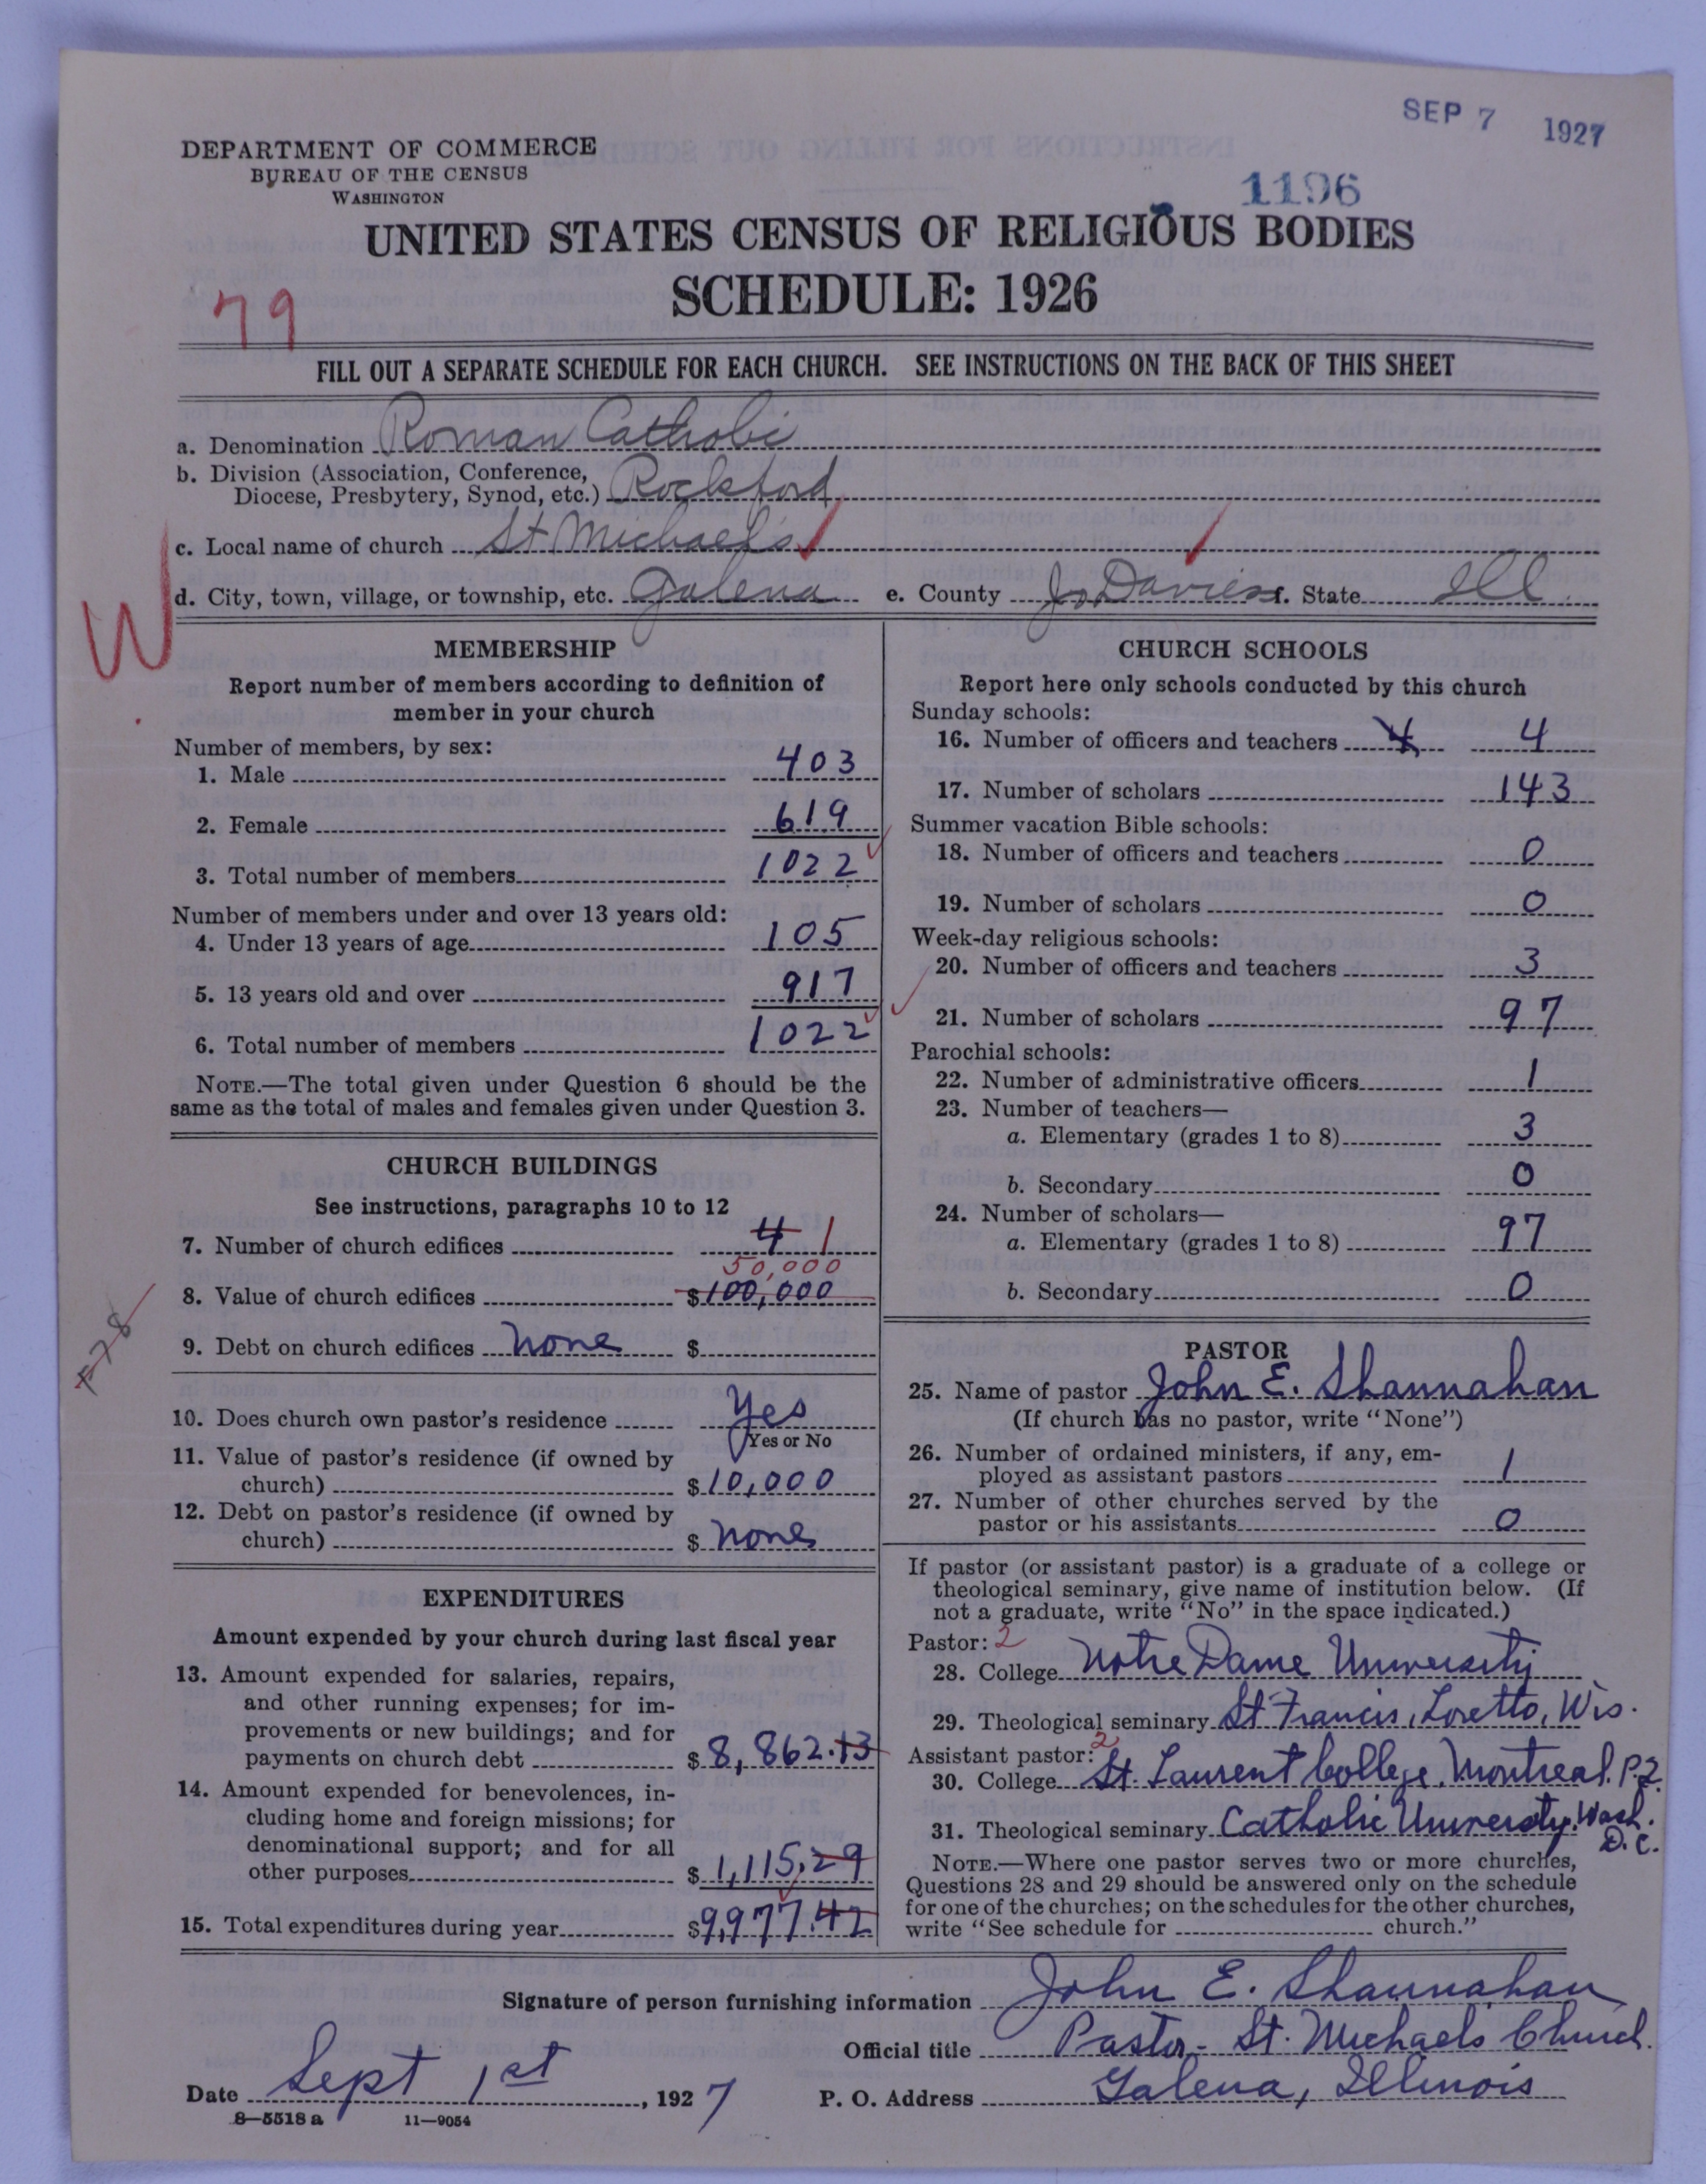 SEP 7 1927
DEPARTMENT OF COMMERCE
BUREAU OF THE CENSUS
WASHINGTON
1196
UNITED STATES CENSUS OF RELIGIOUS BODIES
SCHEDULE: 1926
79
FILL OUT A SEPARATE SCHEDULE FOR EACH CHURCH. SEE INSTRUCTIONS ON THE BACK OF THIS SHEET
a. Denomination Roman Catholic
b. Division (Association, Conference,
Diocese, Presbytery, Synod, etc.) Rockford
c. Local name of church St Michael's
d. City, town, village, or township, etc. Galena e. County Jo Daviess f. State Ill
W
MEMBERSHIP
Report number of members according to definition of
member in your church
Number of members, by sex:
1. Male 403
2. Female 619
3. Total number of members 1022
Number of members under and over 13 years old:
4. Under 13 years of age 105
5. 13 years old and over 917
6. Total number of members 1022
NOTE.—The total given under Question 6 should be the
same as the total of males and females given under Question 3.
CHURCH BUILDINGS
See instructions, paragraphs 10 to 12
7. Number of church edifices 4 1
50,000
8. Value of church edifices $100,000
9. Debt on church edifices none $
10. Does church own pastor's residence Yes
Yes or No
11. Value of pastor's residence (if owned by
church) $10,000
12. Debt on pastor's residence (if owned by
church) $ none
EXPENDITURES
Amount expended by your church during last fiscal year
13. Amount expended for salaries, repairs,
and other running expenses; for im-
provements or new buildings; and for
payments on church debt $8,862.13
14. Amount expended for benevolences, in-
cluding home and foreign missions; for
denominational support; and for all
other purposes $1,115.29
15. Total expenditures during year $9,977.42
CHURCH SCHOOLS
Report here only schools conducted by this church
Sunday schools:
16. Number of officers and teachers 4 4
17. Number of scholars 143
Summer vacation Bible schools:
18. Number of officers and teachers 0
19. Number of scholars 0
Week-day religious schools:
20. Number of officers and teachers 3
21. Number of scholars 97
Parochial schools:
22. Number of administrative officers 1
23. Number of teachers—
a. Elementary (grades 1 to 8) 3
b. Secondary 0
24. Number of scholars—
a. Elementary (grades 1 to 8) 97
b. Secondary 0
PASTOR
25. Name of pastor John E. Shannahan
(If church has no pastor, write "None")
26. Number of ordained ministers, if any, em-
ployed as assistant pastors 1
27. Number of other churches served by the
pastor or his assistants 0
If pastor (or assistant pastor) is a graduate of a college or
theological seminary, give name of institution below. (If
not a graduate, write "No" in the space indicated.)
Pastor: 2
28. College Notre Dame University
29. Theological seminary St Francis, Loretto, Wis.
Assistant pastor: 2
30. College St. Laurent College, Montreal. P.2.
31. Theological seminary Catholic University. Wash.
D.C.
NOTE.—Where one pastor serves two or more churches,
Questions 28 and 29 should be answered only on the schedule
for one of the churches; on the schedules for the other churches,
write "See schedule for church."
Signature of person furnishing information John E. Shannahan
Official title Pastor - St. Michaels Church.
Date Sept 1st, 1927 P. O. Address Galena, Illinois
8—5518 a 11—9054